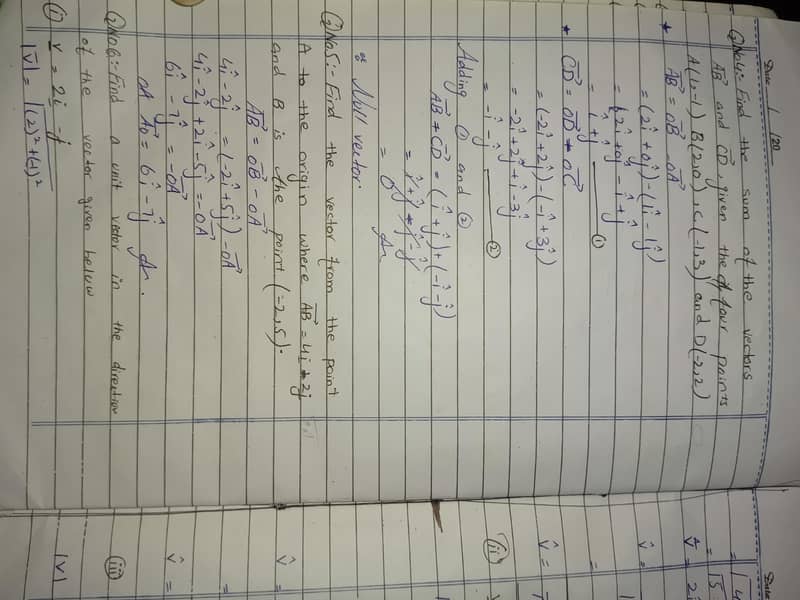 Date 1 /20
Q No4:- Find the sum of the vectors
AB and CD, given the four points
A(1,-1) B(2,0), C(-1,3) and D(-2,2)
* AB = OB - OA
= (2î + 0ĵ) - (1î - 1ĵ)
= 2î + 0ĵ - î + ĵ
= î + ĵ ①
* CD = OD - OC
= (-2î + 2ĵ) - (-1î + 3ĵ)
= -2î + 2ĵ + î - 3ĵ
= -î - ĵ ②
Adding ① and ②
AB + CD = (î + ĵ) + (-î - ĵ)
= î + ĵ - î - ĵ
= 0 An
Null vector.
Q No5:- Find the vector from the point
A to the origin where AB = 4i - 2j
and B is the point (-2, 5).
AB = OB - OA
4î - 2ĵ = (-2î + 5ĵ) - OA
4î - 2ĵ + 2î - 5ĵ = -OA
6î - 7ĵ = -OA
OR AO = 6î - 7ĵ An.
Q No6:- Find a unit vector in the direction
of the vector given below
(i) v = 2i - j
|v| = √(2)² + (-1)²
Date
=
= √5
v̂ = 2i
v̂ =
=
v̂ =
(ii)
v̂ =
=
v̂ =
(iii)
|v|